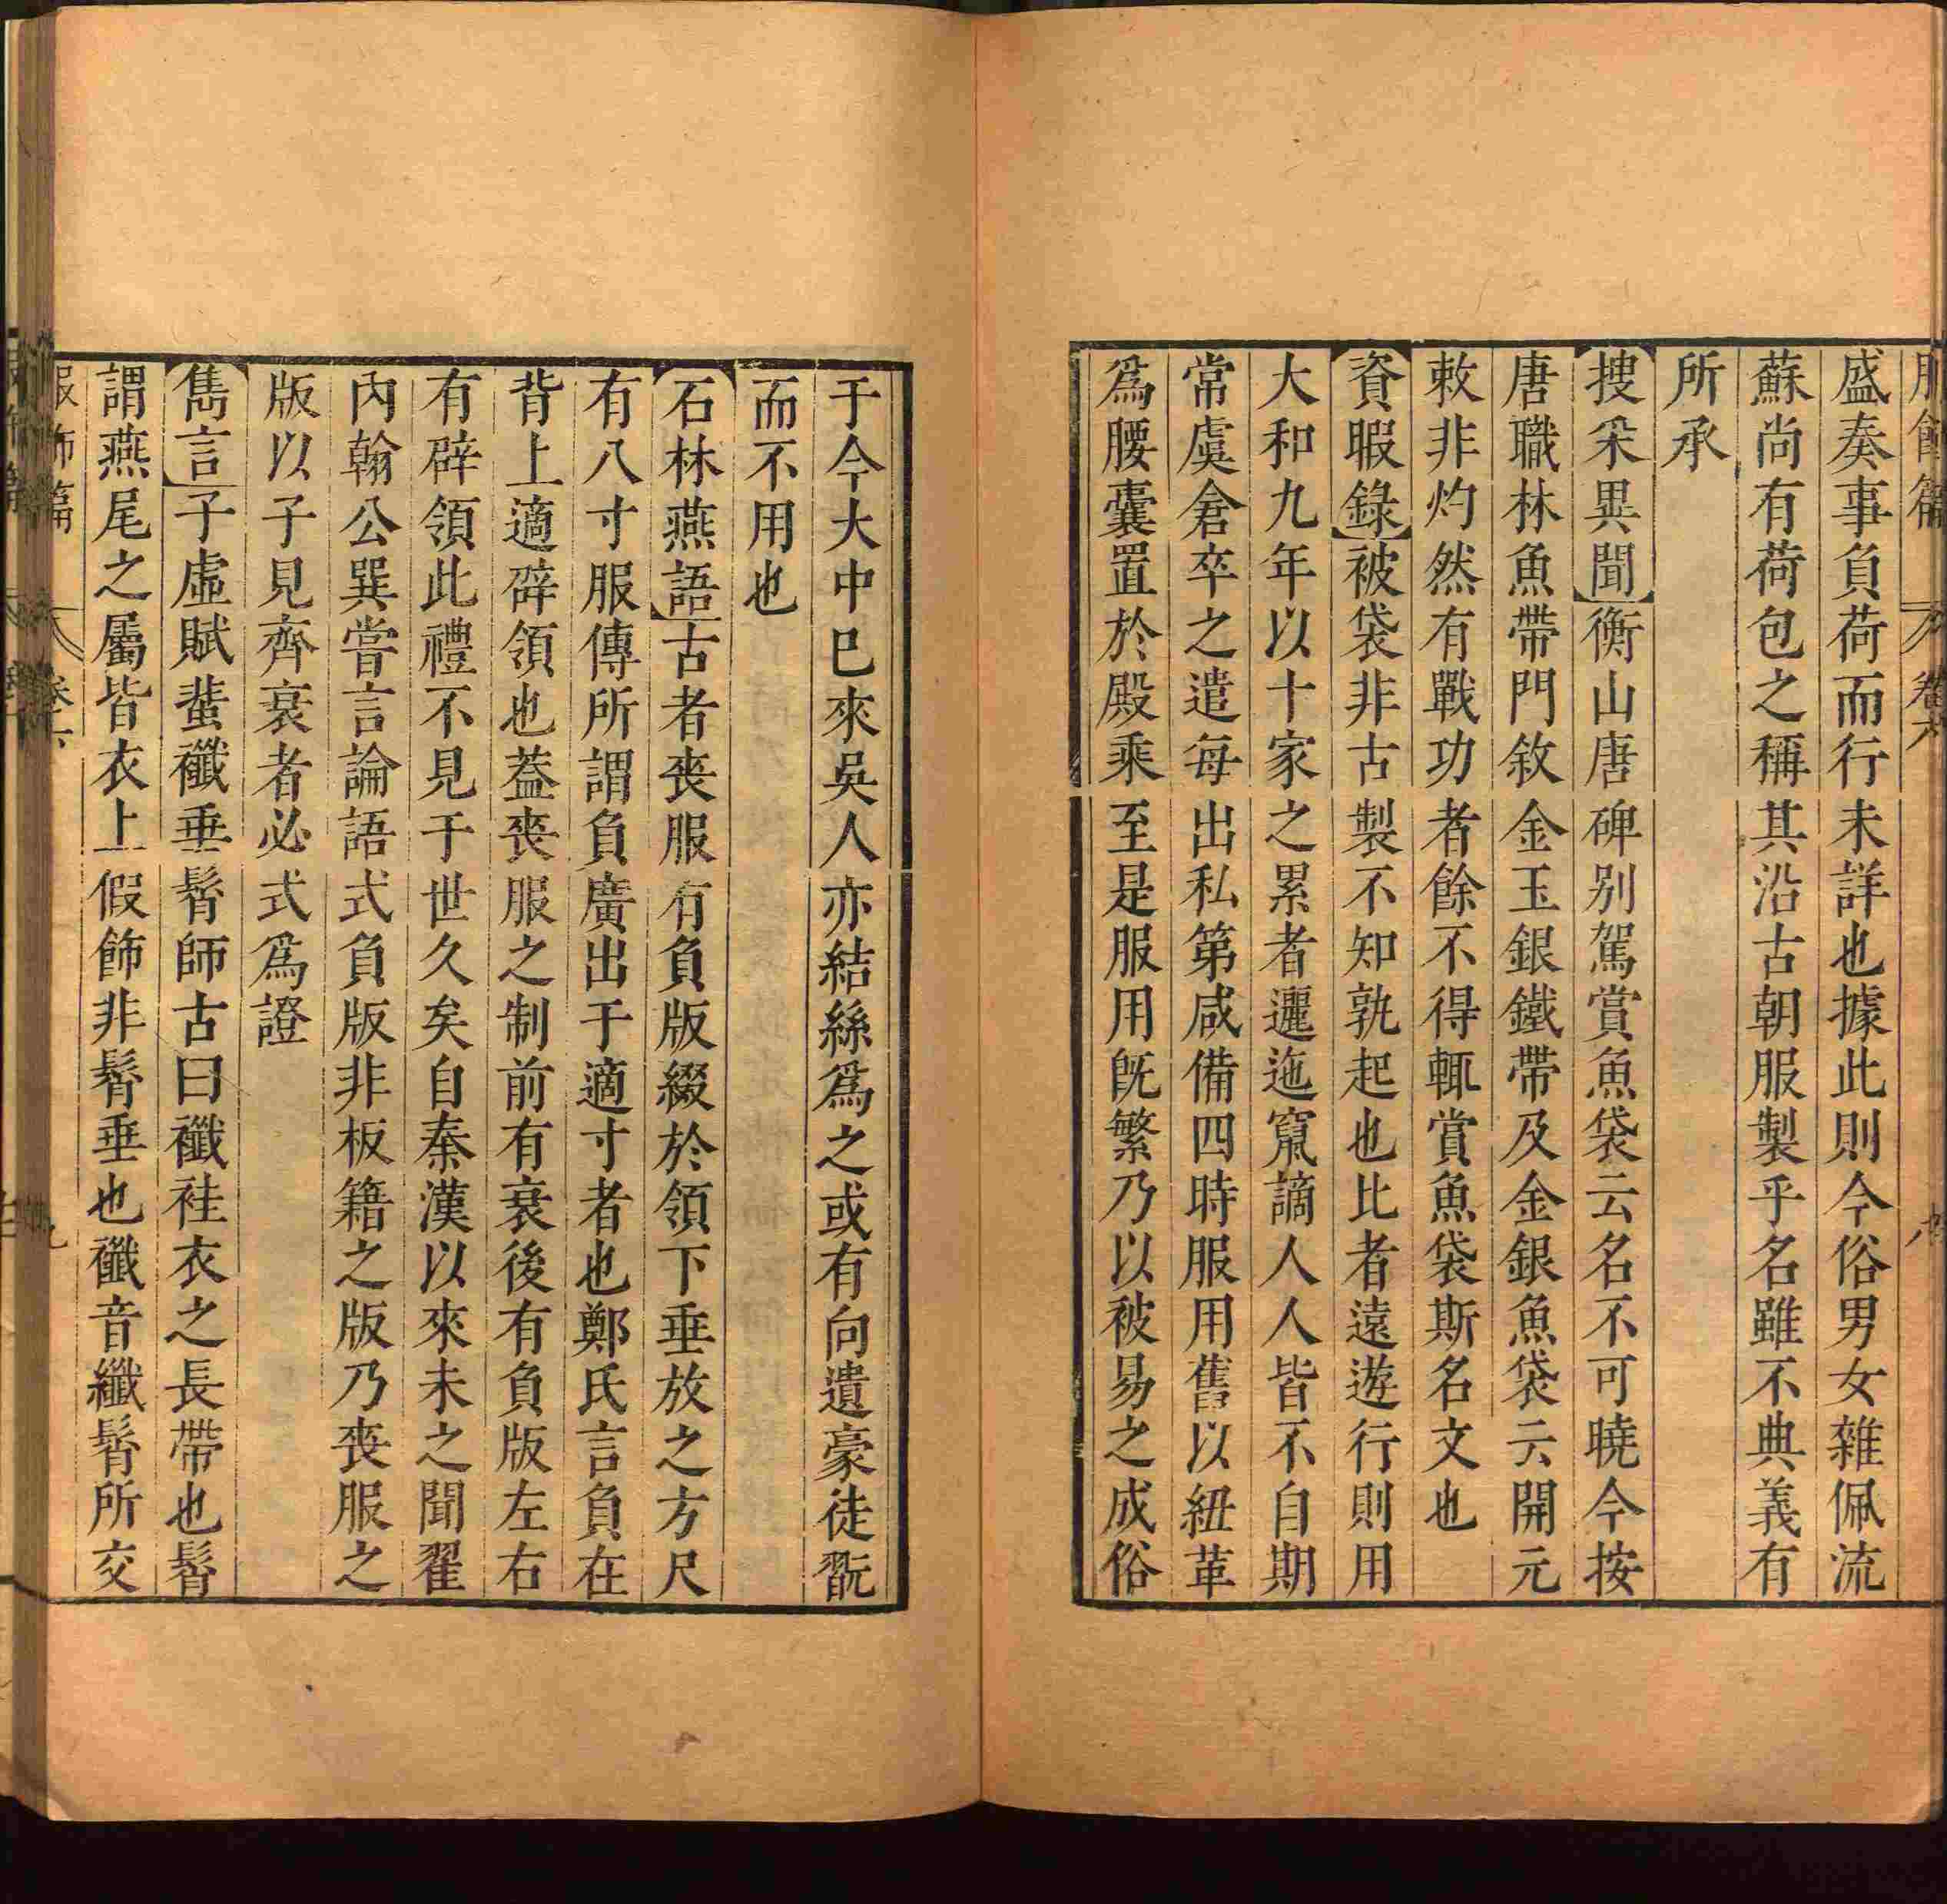 服飾篇 卷六
盛奏事負荷而行未詳也據此則今俗男女雜佩流
蘇尚有荷包之稱其沿古朝服製乎名雖不典義有
所承
搜采異聞衡山唐碑別駕賞魚袋云名不可曉今按
唐職林魚帶門敘金玉銀鐵帶及金銀魚袋云開元
敕非灼然有戰功者餘不得輒賞魚袋斯名文也
資暇錄被袋非古製不知孰起也比者遠遊行則用
大和九年以十家之累者邐迤竄謫人人皆不自期
常虞倉卒之遣每出私第咸備四時服用舊以紐革
爲腰囊置於殿乘至是服用旣繁乃以被易之成俗
于今大中已來吳人亦結絲爲之或有向遺豪徒翫
而不用也
石林燕語古者喪服有負版綴於領下垂放之方尺
有八寸服傳所謂負廣出于適寸者也鄭氏言負在
背上適辟領也蓋喪服之制前有衰後有負版左右
有辟領此禮不見于世久矣自秦漢以來未之聞翟
內翰公巽嘗言論語式負版非板籍之版乃喪服之
版以子見齊衰者必式爲證
雋言子虛賦蜚襳垂髾師古曰襳袿衣之長帶也髾
謂燕尾之屬皆衣上假飾非髾垂也襳音纖髾所交
服飾篇 卷六 九